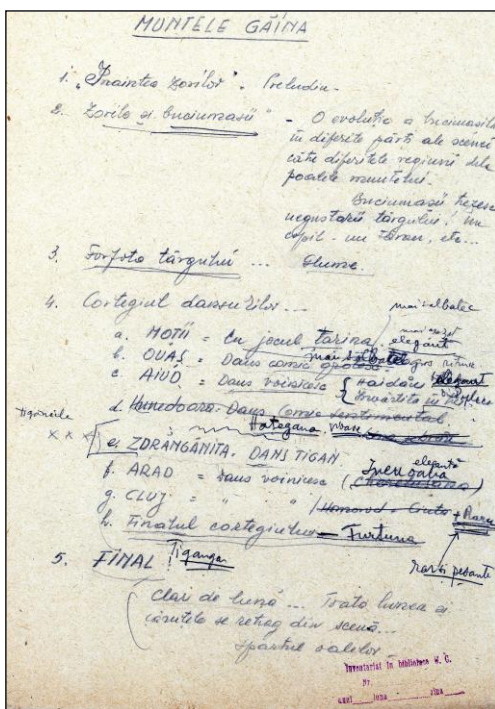 MUNTELE GĂINA
1. "Înaintea zorilor". Preludiu.
2. Zorile și buciumașii" - O evoluție a buciumașilor
în diferite părți ale scenei
către diferitele regiuni dela
poalele muntelui.
Buciumașii trezesc
negustorii târgului! un
copil - un țăran, etc...
3. Forfota târgului ... Glume.
4. Cortegiul dansurilor...
mai sălbatec
a. MOȚII = Cu jocul țarina
elegant
b. OUAȘ = Dans comic
c. AIUD = Dans voinicesc { Haidău elegant
Învârtita
d. Hunedoara. Dans Comic sentimental
Hațegana
x x x
e. ZDRANGĂNITA. DANS ȚIGAN
elegantă
f. ARAD = Dans voinicesc (
g. CLUJ = " "
h. Finalul cortegiului - Furtuna
5. FINAL
pesante
Clar de lună ... Toată lumea și
căruțele se retrag din scenă...
Inventariat în biblioteca
Nr.
anul luna ziua